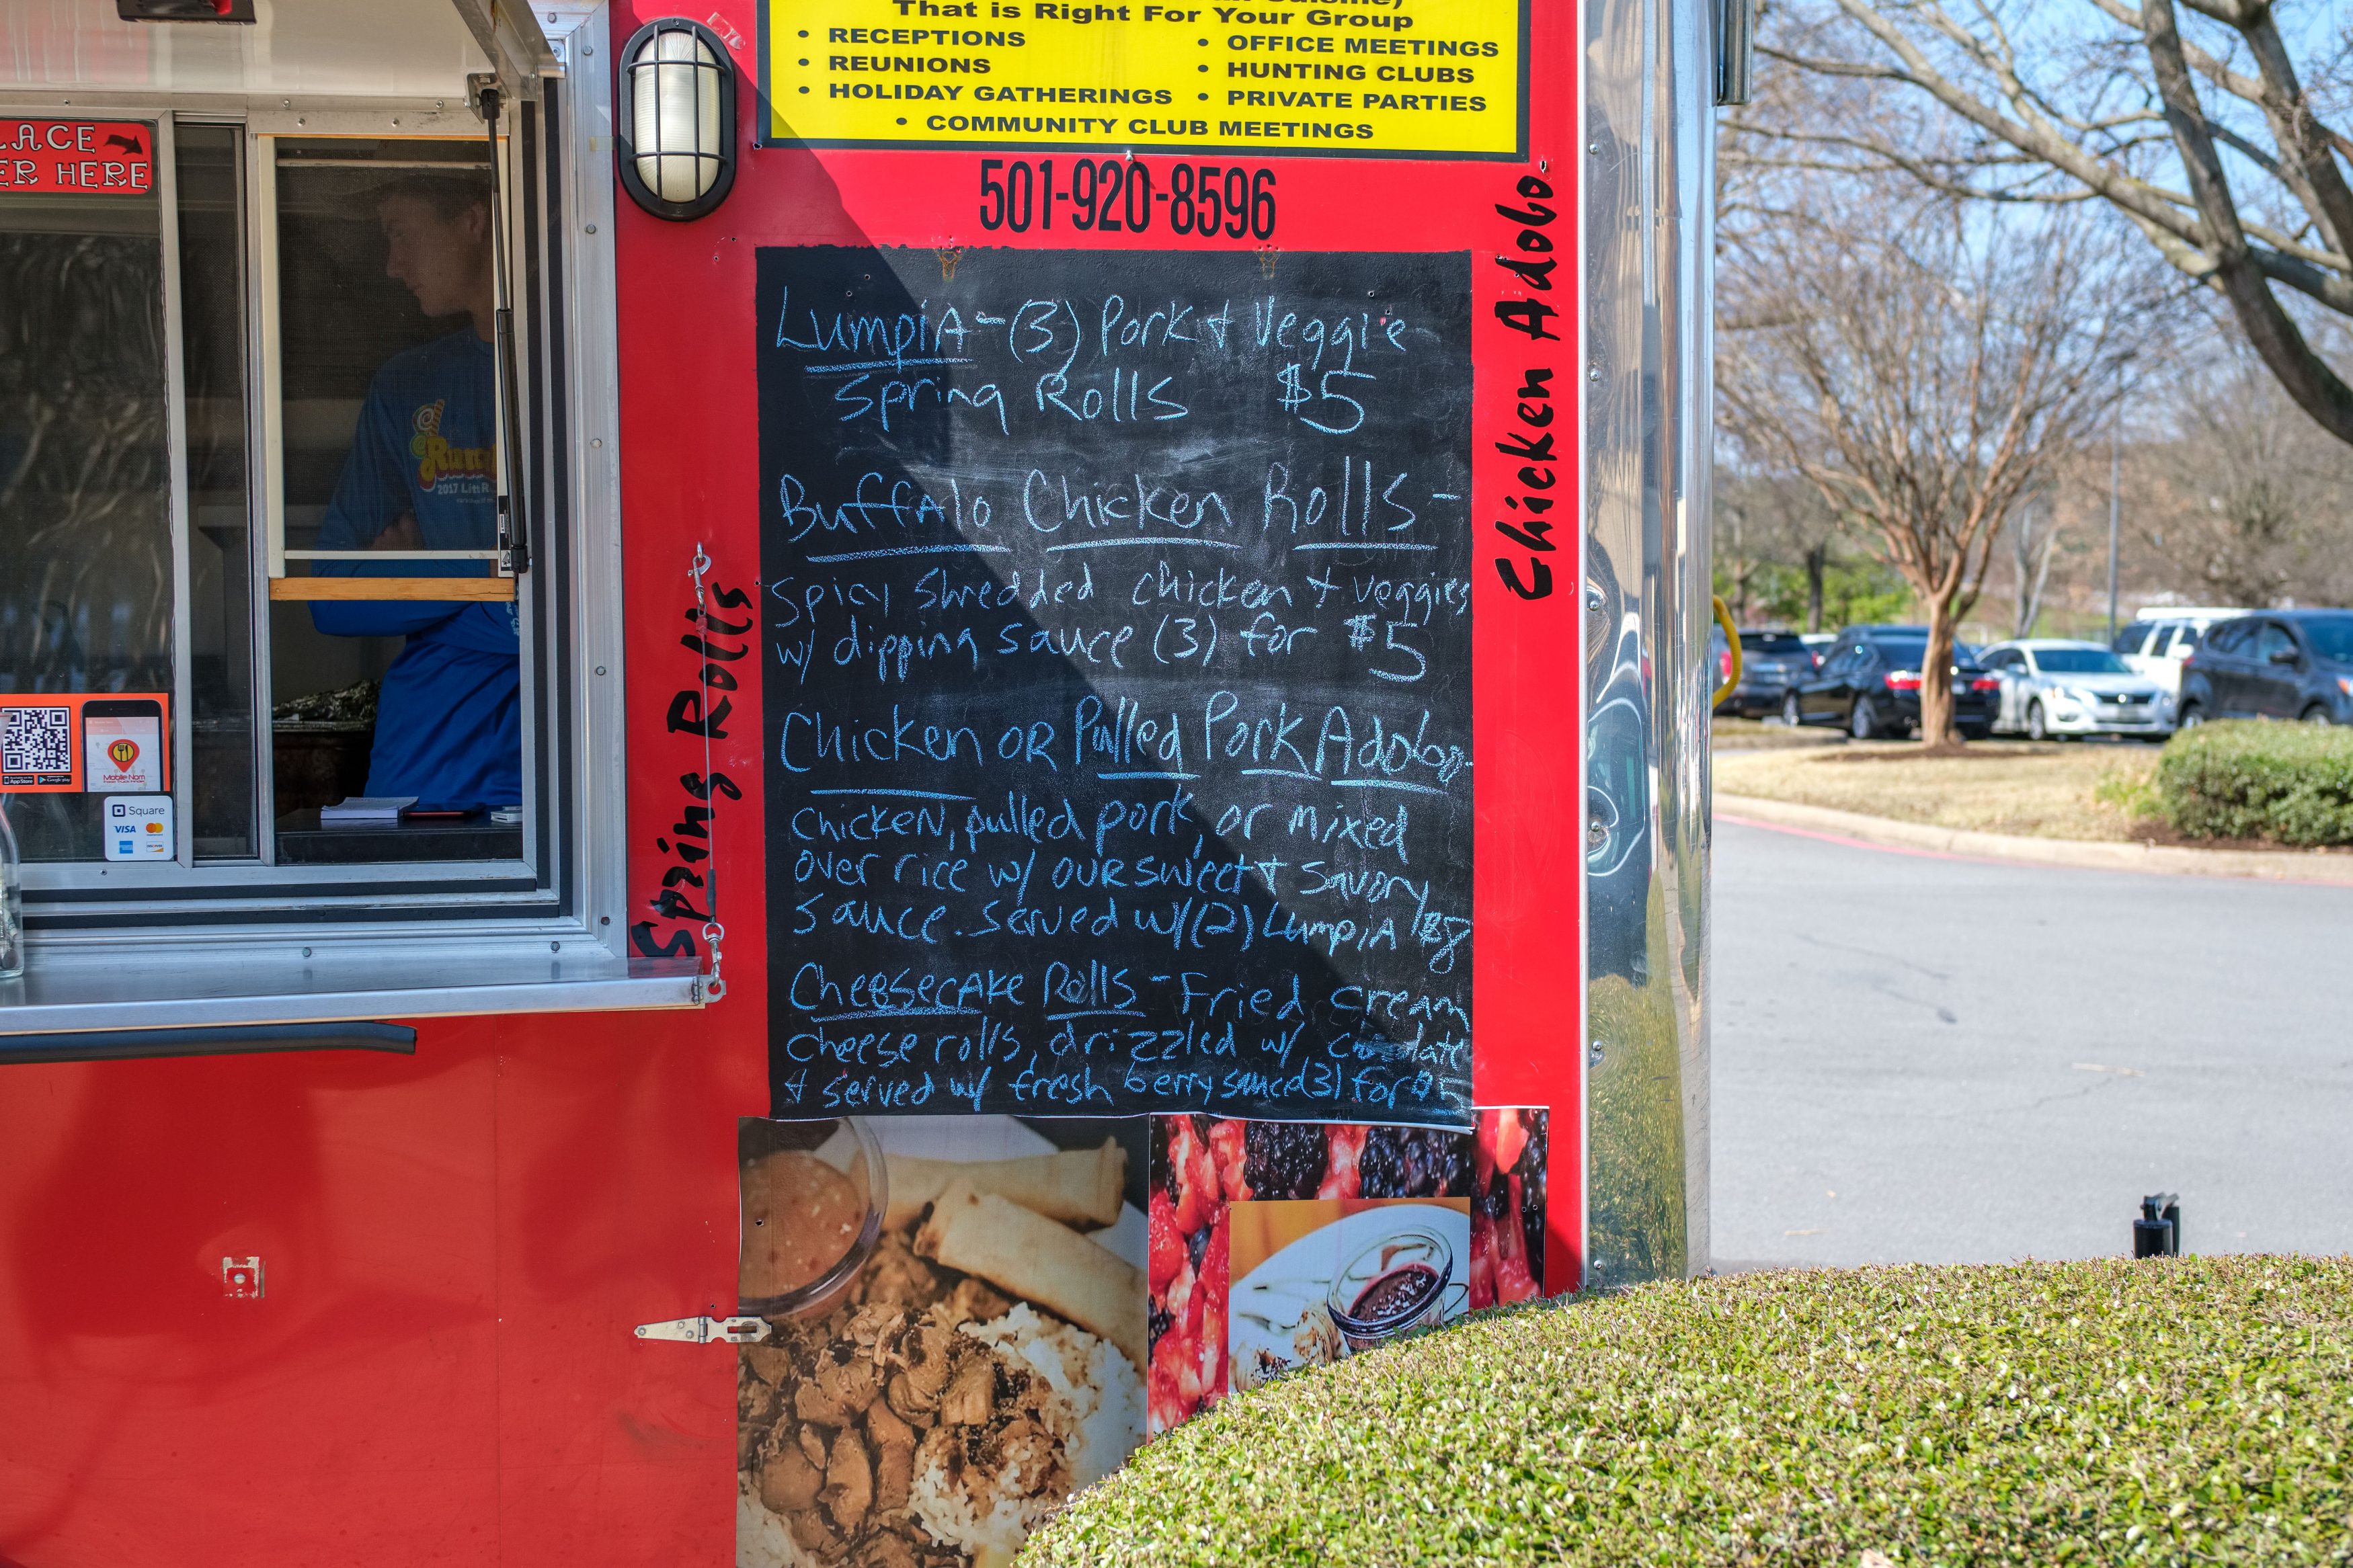 That is Right For Your Group
• RECEPTIONS
• REUNIONS
• HOLIDAY GATHERINGS
• OFFICE MEETINGS
• HUNTING CLUBS
• PRIVATE PARTIES
• COMMUNITY CLUB MEETINGS
501-920-8596
LACE
ER HERE
Lumpia-(3) Pork + Veggie
Spring Rolls $5
Buffalo Chicken Rolls-
Spicy shredded chicken + veggies
w/ dipping sauce (3) for $5
Chicken or Pulled Pork Adobo-
chicken, pulled pork, or mixed
over rice w/ our sweet + savory
sauce. served w/(2) Lumpia $8
Cheesecake Rolls-Fried cream
cheese rolls, drizzled w/ chocolate
+ served w/ fresh berry sauce(3) for $5
Spring Rolls
Chicken Adobo
2017
Mobile Nom
App Store
Google play
Square
VISA